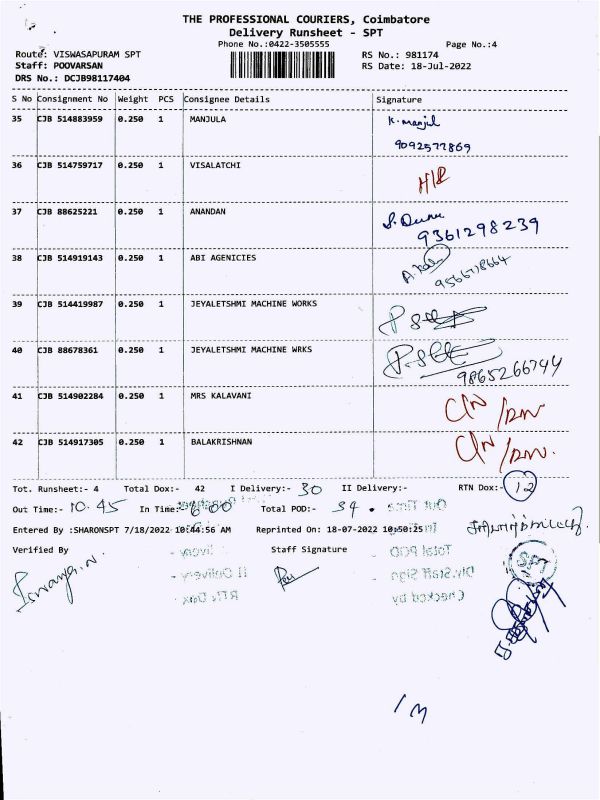 THE PROFESSIONAL COURIERS, Coimbatore
Delivery Runsheet - SPT
Phone No.:0422-3505555 Page No.:4
Route: VISWASAPURAM SPT RS No.: 981174
Staff: POOVARSAN RS Date: 18-Jul-2022
DRS No.: DCJB98117404
S No Consignment No Weight PCS Consignee Details Signature
35 CJB 514883959 0.250 1 MANJULA K. Manjul
9092577869
36 CJB 514759717 0.250 1 VISALATCHI
37 CJB 88625221 0.250 1 ANANDAN
9361298239
38 CJB 514919143 0.250 1 ABI AGENICIES
39 CJB 514419987 0.250 1 JEYALETSHMI MACHINE WORKS
40 CJB 88678361 0.250 1 JEYALETSHMI MACHINE WRKS
9865266744
41 CJB 514902284 0.250 1 MRS KALAVANI
42 CJB 514917305 0.250 1 BALAKRISHNAN
Tot. Runsheet:- 4 Total Dox:- 42 I Delivery:- 30 II Delivery:- RTN Dox:- 12
Out Time:- 10.45 In Time:- 6:00 Total POD:- 34.
Entered By :SHARONSPT 7/18/2022 10:44:56 AM Reprinted On: 18-07-2022 10:50:25
Verified By Staff Signature
SPT